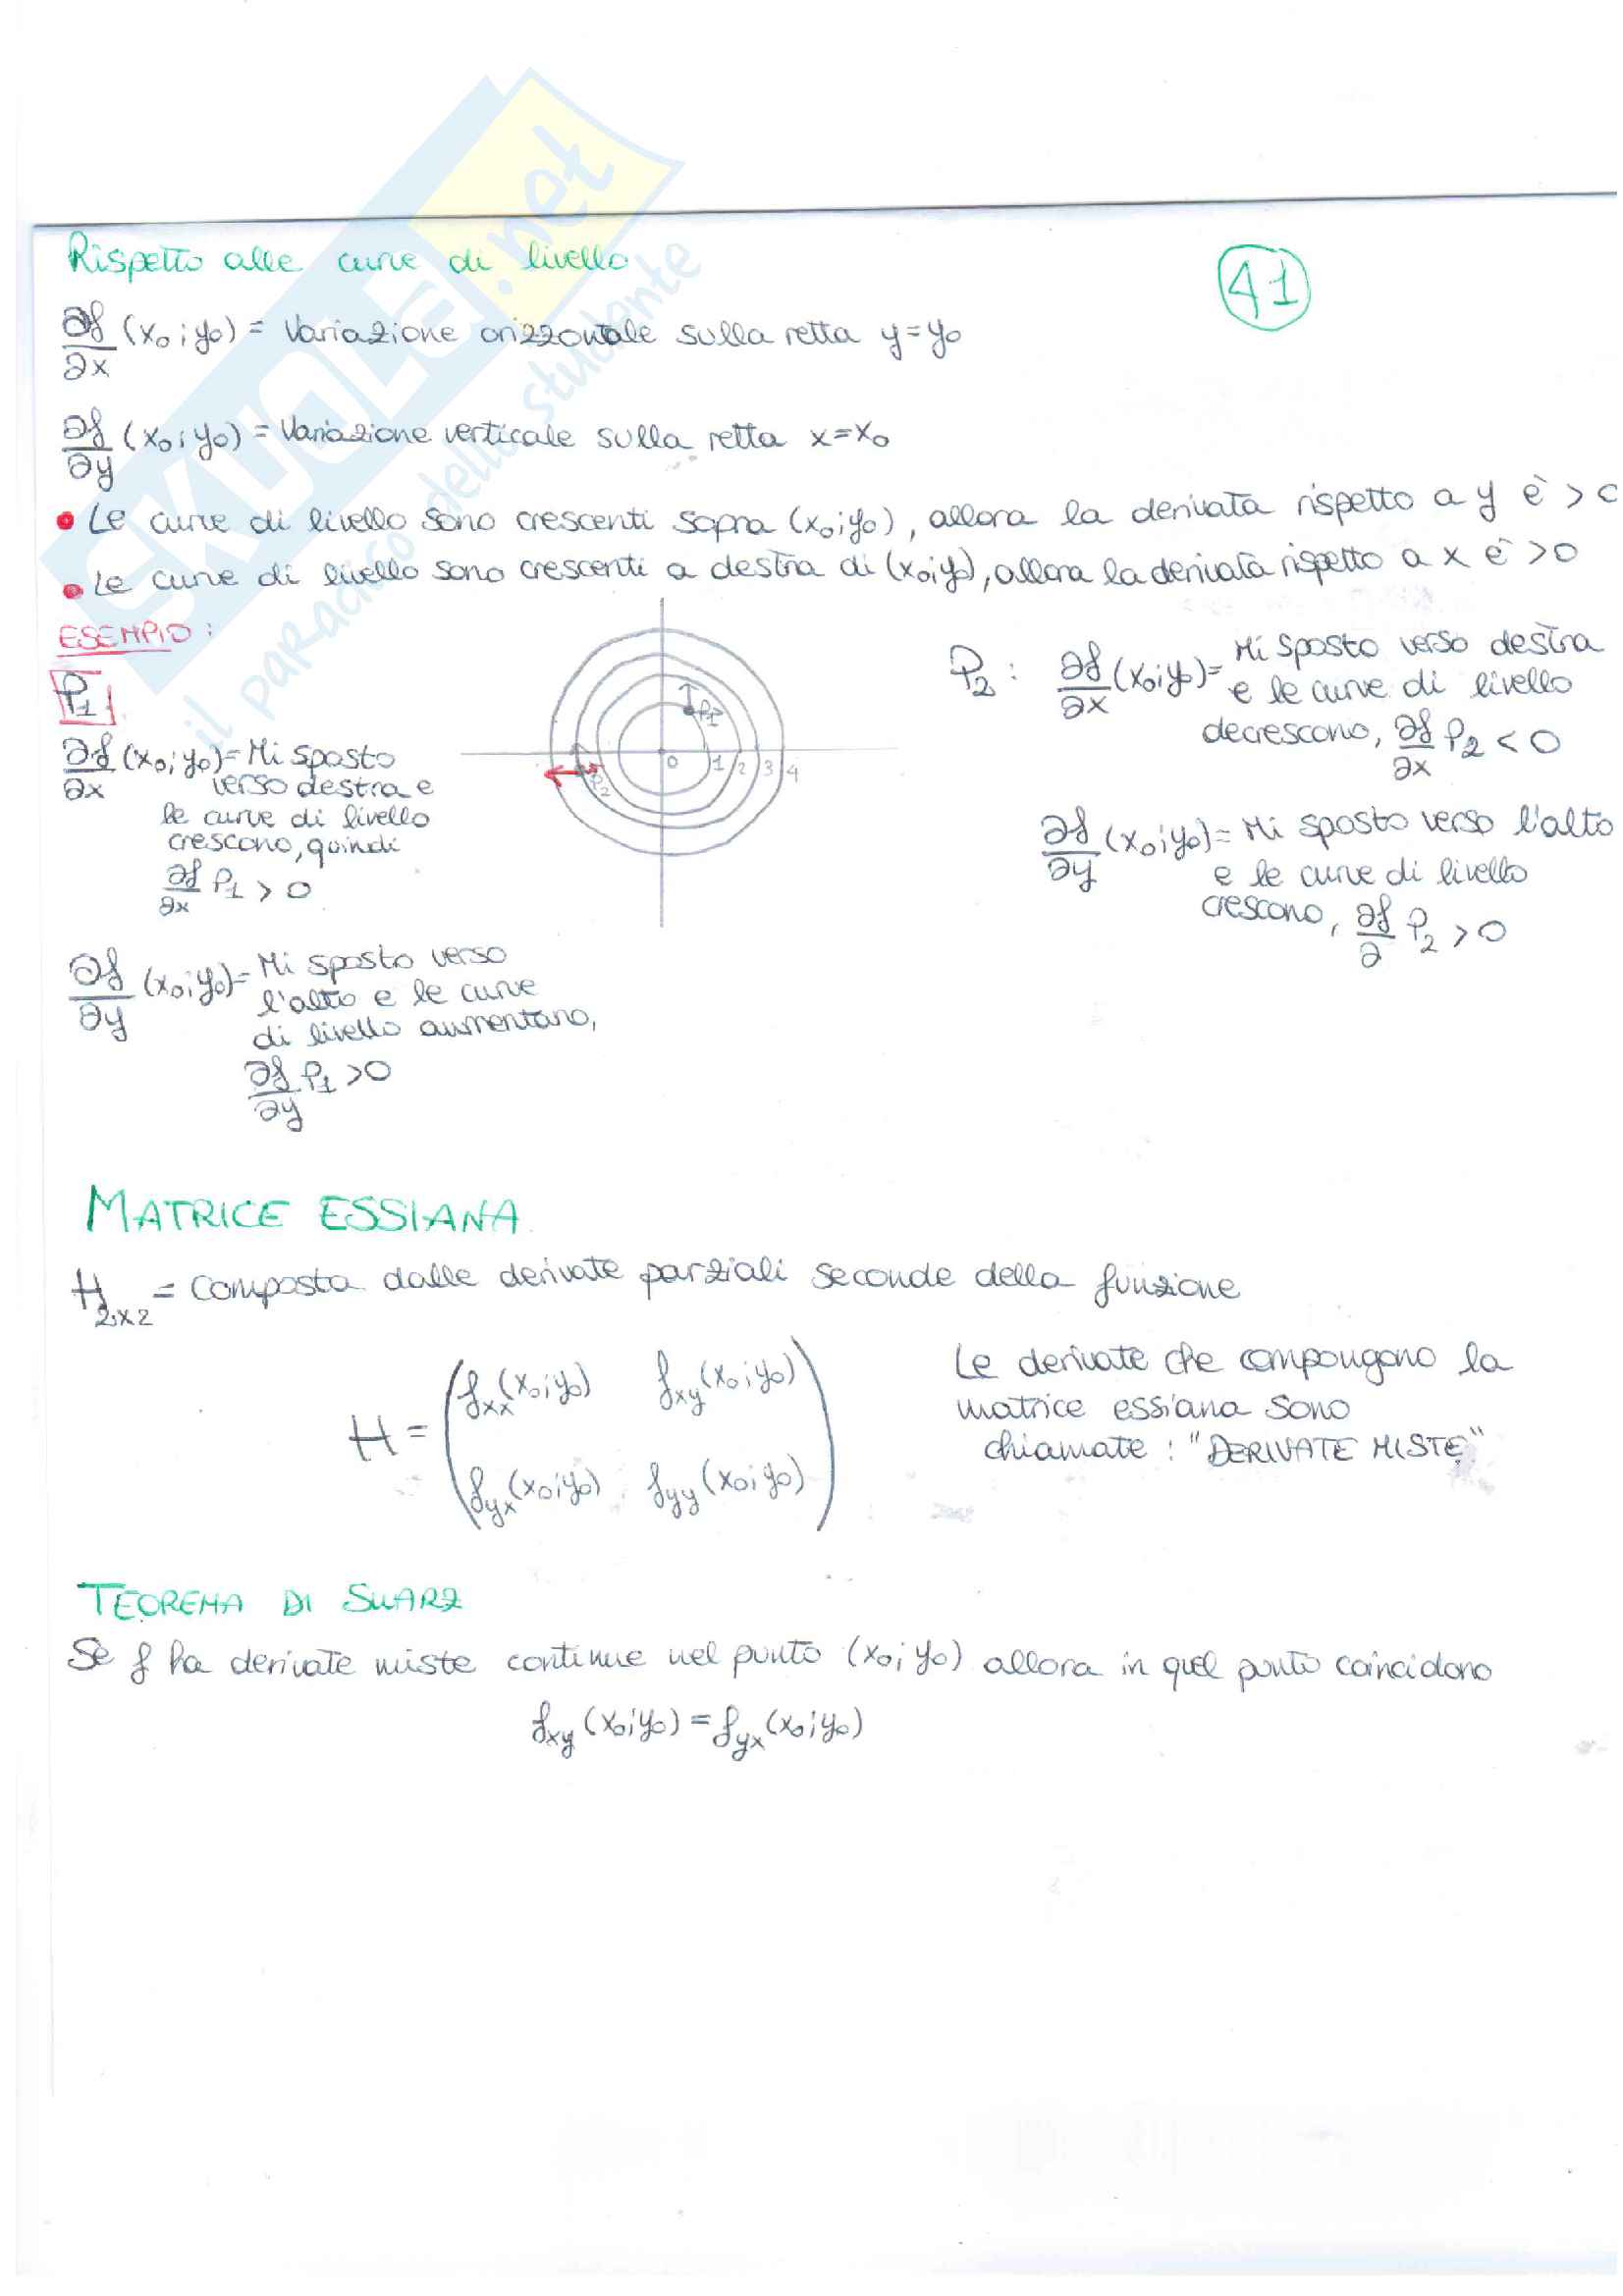 SKUOLA.net
il paradiso dello studente
Rispetto alle curve di livello
41
∂f/∂x (x₀;y₀) = Variazione orizzontale sulla retta y=y₀
∂f/∂y (x₀;y₀) = Variazione verticale sulla retta x=x₀
• Le curve di livello sono crescenti sopra (x₀;y₀), allora la derivata rispetto a y è >0
• Le curve di livello sono crescenti a destra di (x₀;y₀), allora la derivata rispetto a x è >0
ESEMPIO:
P₁
∂f/∂x (x₀;y₀)= Mi sposto
verso destra e
le curve di livello
crescono, quindi
∂f/∂x P₁ > 0
∂f/∂y (x₀;y₀)= Mi sposto verso
l'alto e le curve
di livello aumentano,
∂f/∂y P₁ >0
P₁
P₂
0 1 2 3 4
P₂: ∂f/∂x (x₀;y₀)= Mi sposto verso destra
e le curve di livello
decrescono, ∂f/∂x P₂ < 0
∂f/∂y (x₀;y₀)= Mi sposto verso l'alto
e le curve di livello
crescono, ∂f/∂ P₂ >0
MATRICE ESSIANA
H₂ₓ₂ = composta dalle derivate parziali seconde della funzione
H = ( fxx(x₀;y₀) fxy(x₀;y₀)
fyx(x₀;y₀) fyy(x₀;y₀) )
Le derivate che compongono la
matrice essiana sono
chiamate: "DERIVATE MISTE"
TEOREMA DI SWARZ
Se f ha derivate miste continue nel punto (x₀;y₀) allora in quel punto coincidono
fxy(x₀;y₀)=fyx(x₀;y₀)